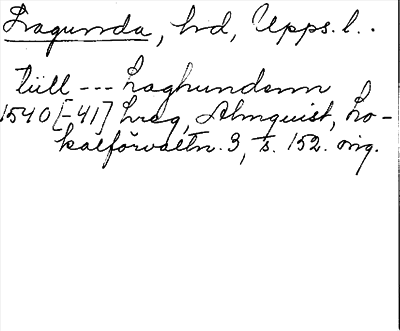 Lagunda, hd, Upps. l..
tüll --- Laghundenn
1540[-41] Lreg, Almquist, Lo-
kalförvaltn. 3, s. 152. orig.